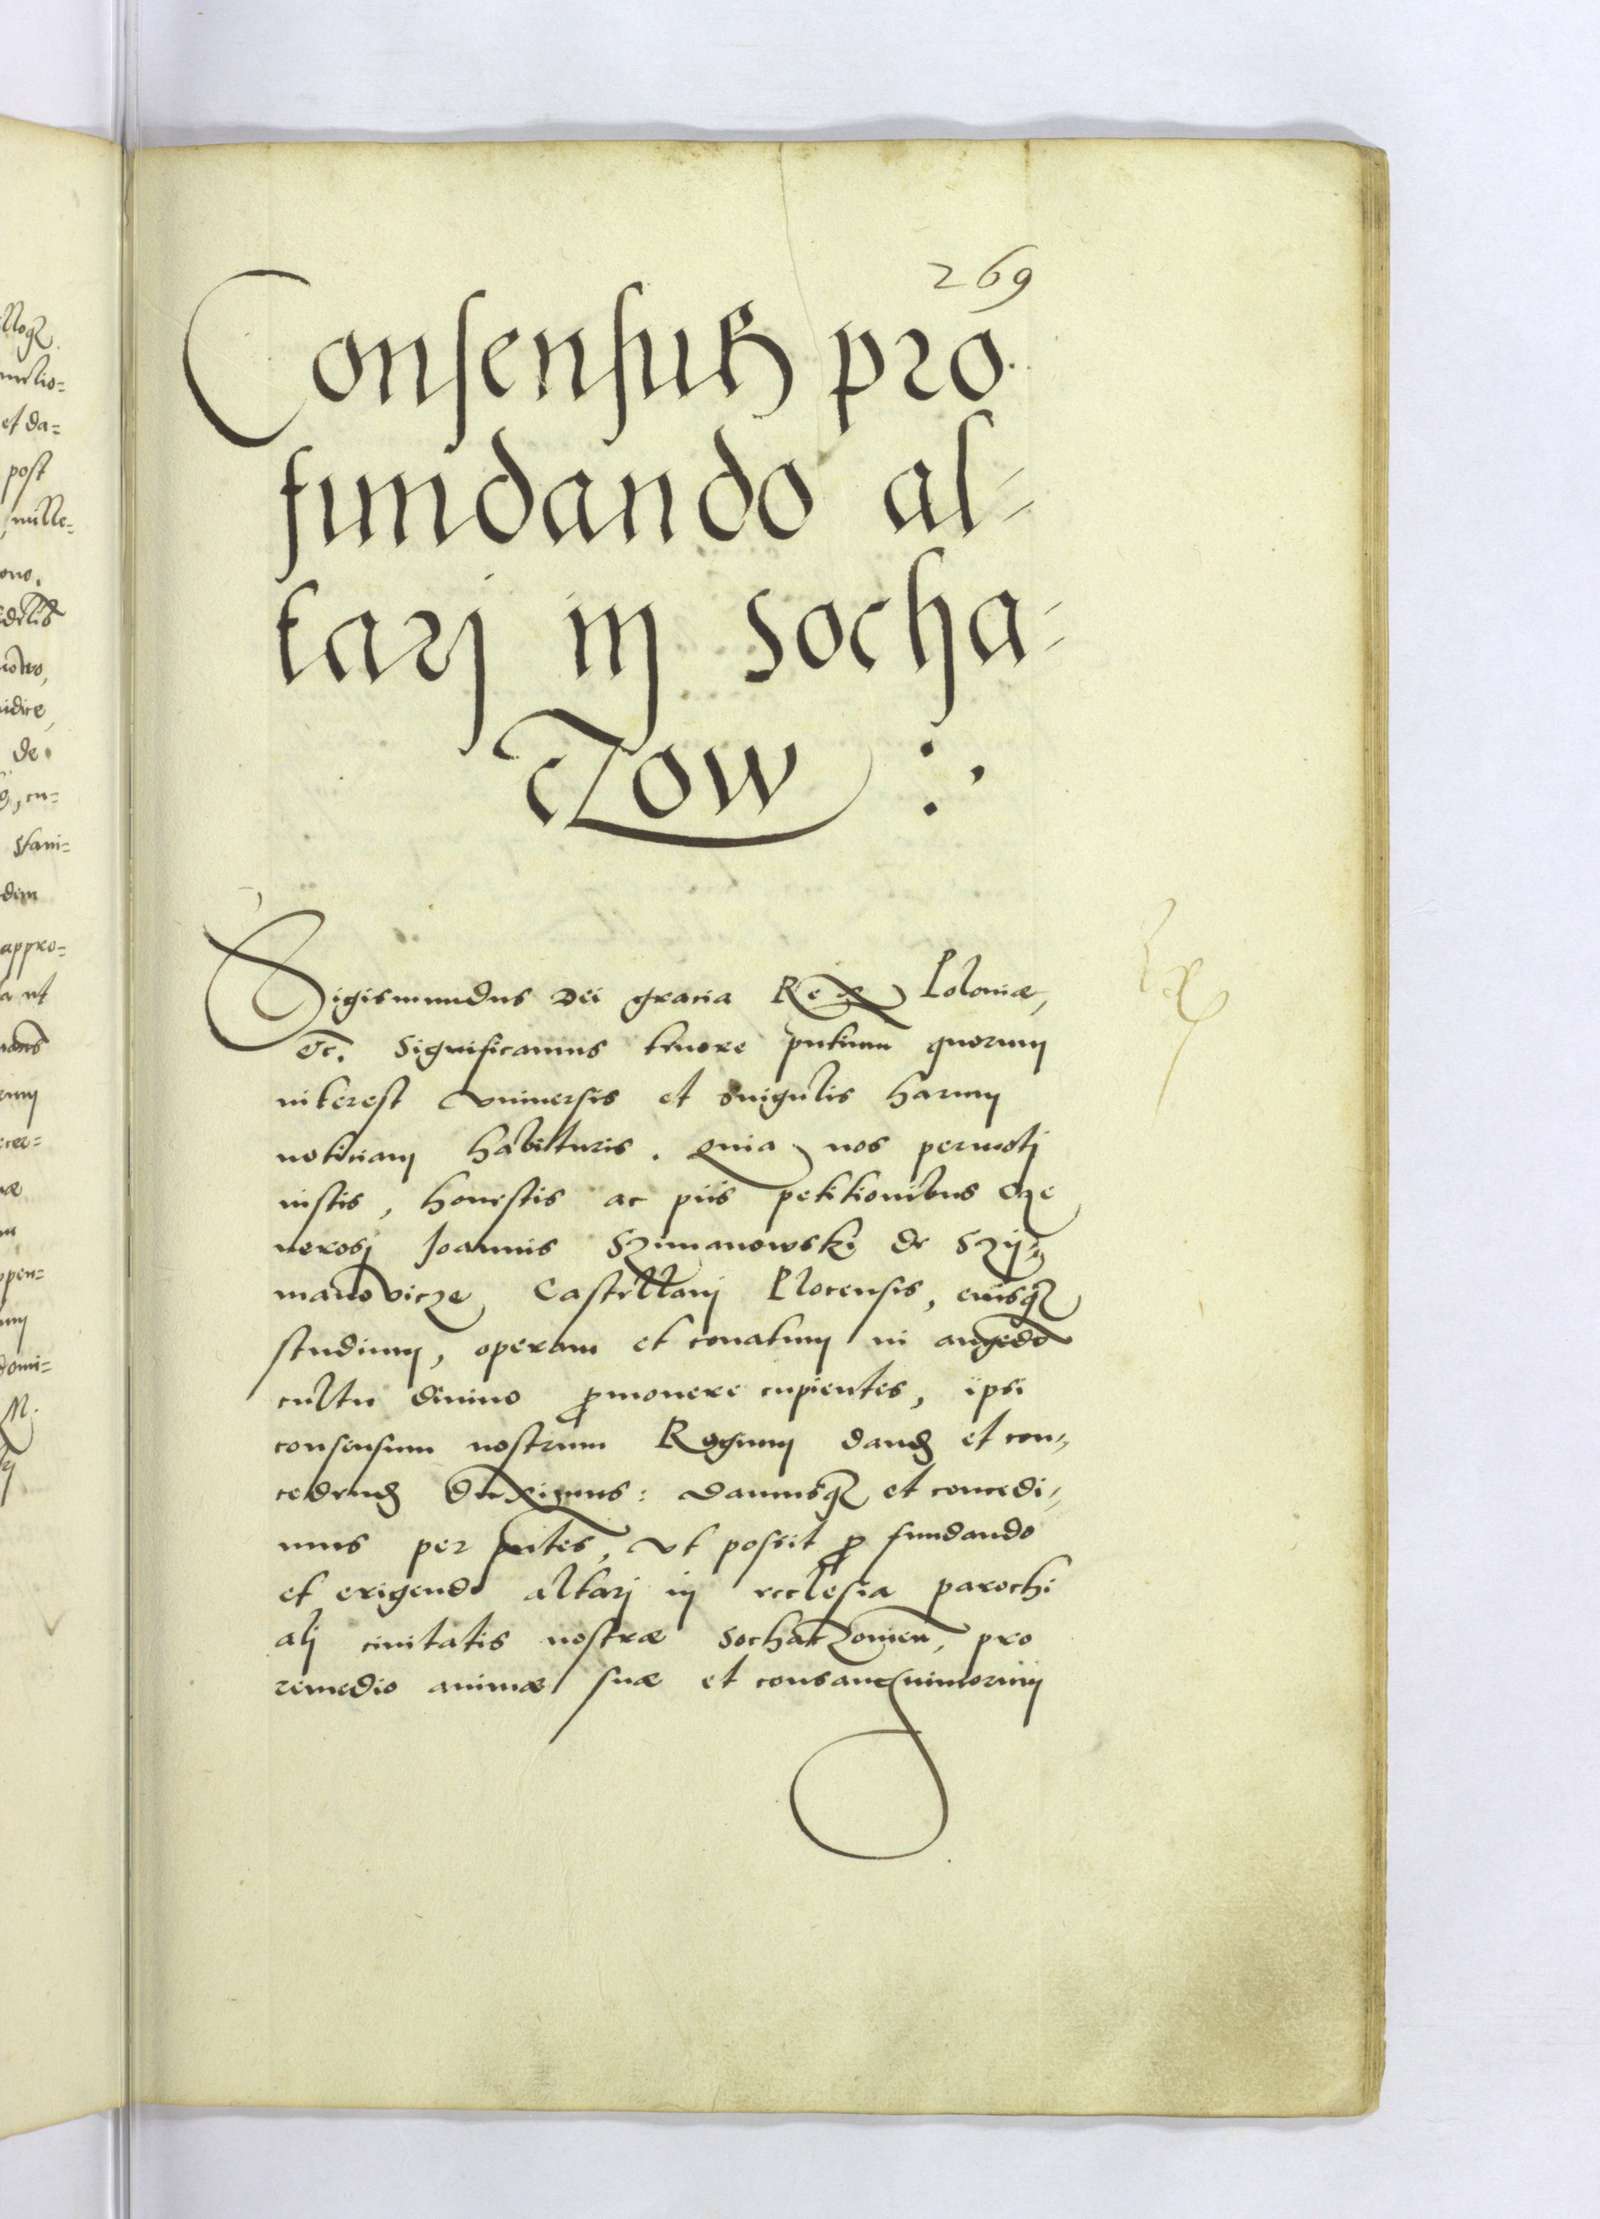 269
Consensus pro
fundando al-
tarj in Socha-
czow
Sigismundus Dei gracia Rex Poloniæ,
etc. Significamus tenore pntium quorum
interest vniuersis et singulis harum
notitiam habituris. Quia nos permotj
iustis, honestis ac piis petitionibus Ge
nerosj Joannis Szimanowski de Szy-
manovicze Castellanj Plocensis, eiusq3
studium, operam et conatum in augedo
cultu diuino promouere cupientes, ipsi
consensum nostrum Regium dand et con-
cedend duximus: damusq3 et concedi-
mus per pntes, vt possit pro fundando
et erigendo altarj in ecclesia parochi
alj ciuitatis nostræ Sochaczouien, pro
remedio animæ suæ et consanguineorum
illoq3
melio-
et da-
post
mille-
ono.
de
stani-
dem
appro-
ut
domi-